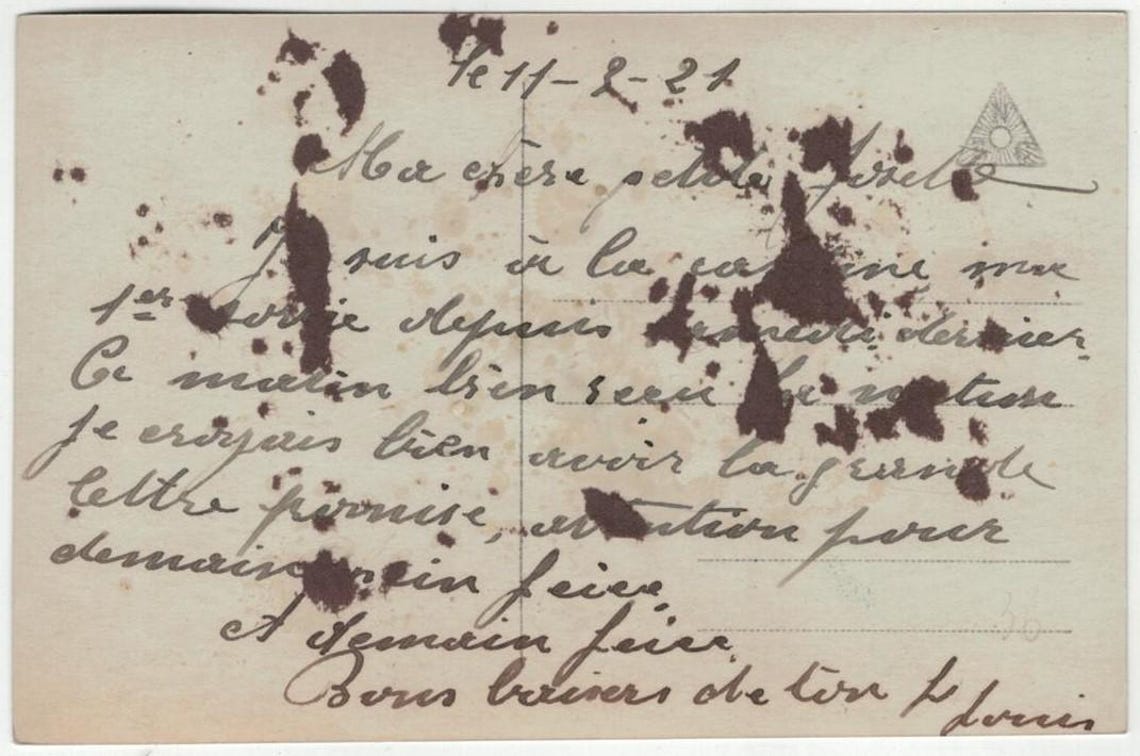 le 11-2-21
Ma chère petite Josette
Je suis à la caserne ma
1ère sortie depuis samedi dernier.
Ce matin bien reçu la
je croyais bien avoir la grande
lettre promise, attention pour
demain
A demain
Bons baisers de ton
Louis